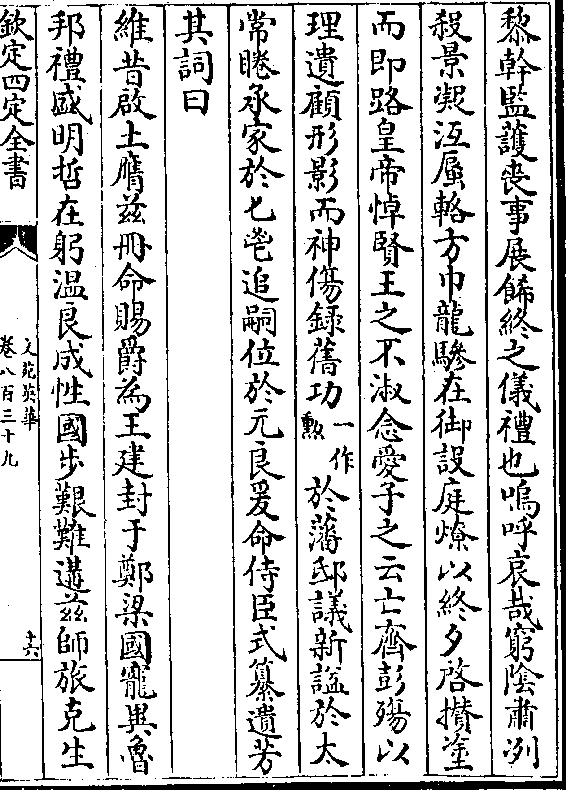 黎幹監護喪事展飾終之儀禮也嗚呼哀哉窮陰肅冽
殺景凝沍蜃輅方巾龍驂在御設庭燎以終夕啓攢塗
而即路皇帝悼賢王之不淑念愛子之云亡齊彭殤以
理遺顧形影而神傷録舊功一作勲於藩邸議新諡於太
常睠承家於匕鬯追嗣位於元良爰命侍臣式纂遺芳
其詞曰
維昔啟土膺兹冊命賜爵為王建封于鄭梁國寵異魯
邦禮盛明哲在躬温良成性國步艱難遘兹師旅克生
欽定四庫全書
文苑英華
卷八百三十九
十六